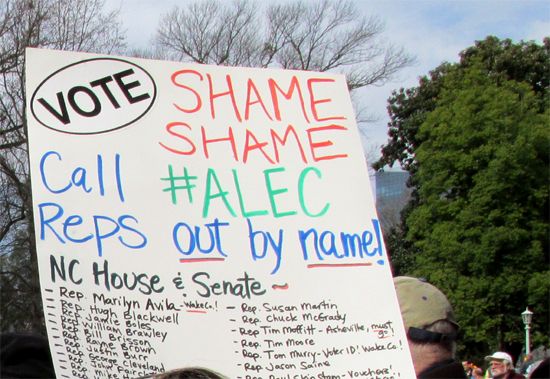 VOTE
SHAME
SHAME
#ALEC
Call
Reps
out by name!
NC House & Senate ~
- Rep. Marilyn Avila - Wake Co.!
- Rep. Hugh Blackwell
- Rep. Jamie Boles
- Rep. William Brawley
- Rep. Bill Brisson
- Rep. Brown
- Rep. Justin Burr
- Rep. George Cleveland
- Rep. Susan Martin
- Rep. Chuck McGrady
- Rep. Tim Moffitt - Asheville, must go!
- Rep. Tim Moore
- Rep. Tom Murry - Voter ID! Wake Co.!
- Rep. Jason Saine